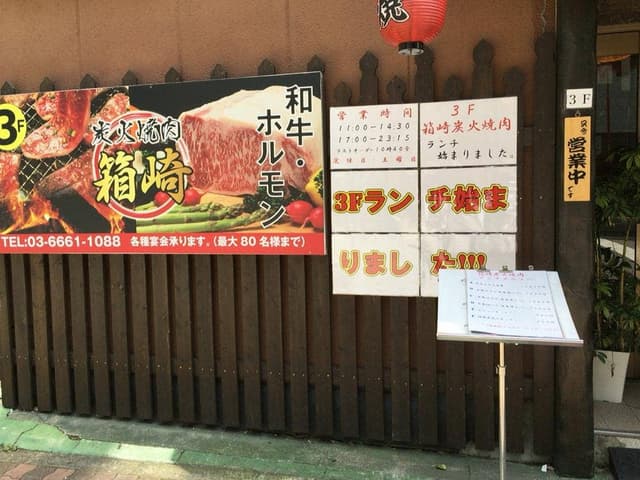 焼
3F
炭火焼肉
箱崎
和牛・
ホルモン
TEL:03-6661-1088 各種宴会承ります。(最大80名様まで)
営業時間
11:00-14:30
17:00-23:15
ラストオーダー10時40分
定休日 土曜日
3F
箱崎炭火焼肉
ランチ
始まりました。
3Fランチ始ま
りました!!!
3F
只今
営業中
です
箱崎炭火焼肉